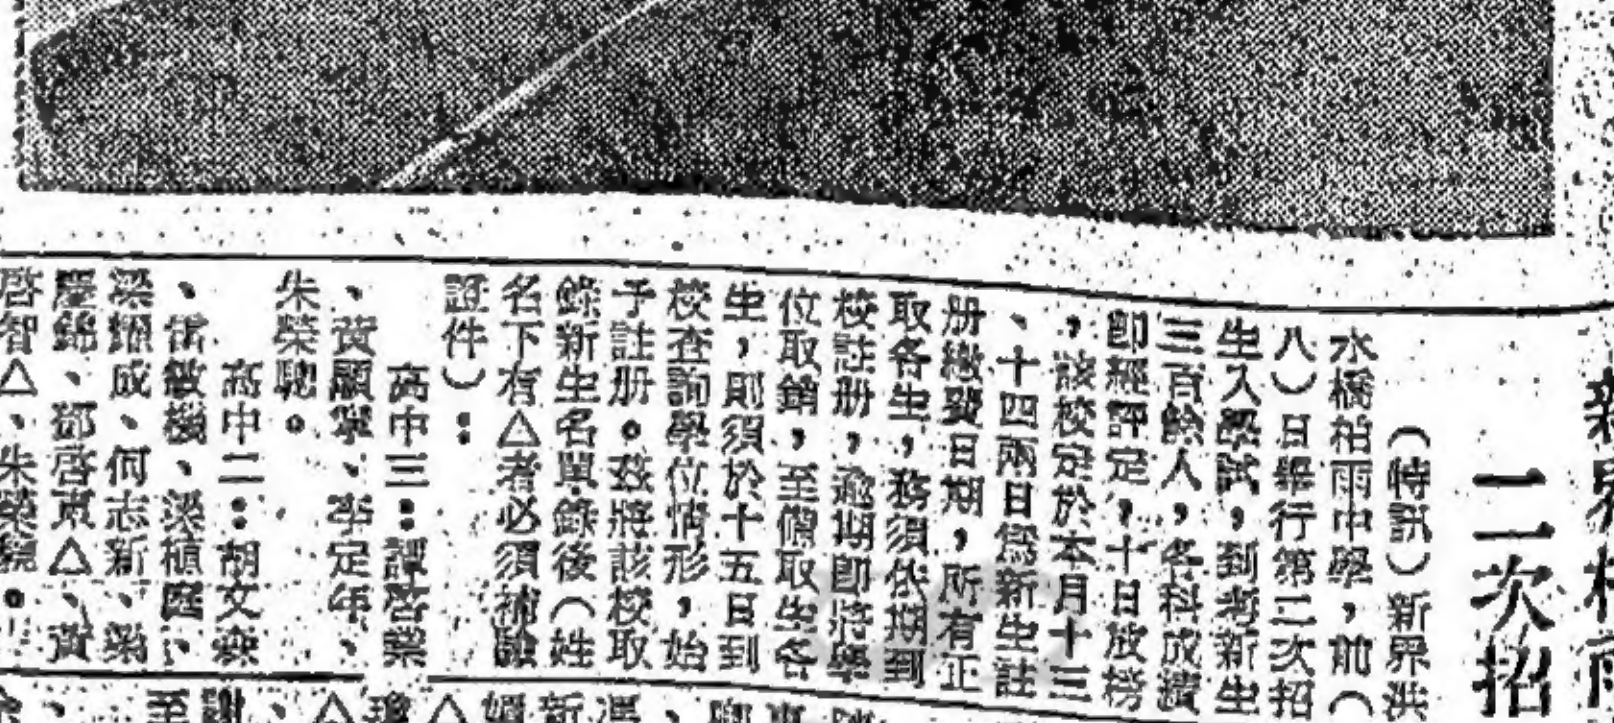 新界柏雨
二次招
（特訊）新界洪
水橋柏雨中學，前（
八）日舉行第二次招
生入學試，到考新生
三百餘人，各科成績
卽經評定，十日放榜
，該校定於本月十三
、十四兩日爲新生註
册繳費日期，所有正
取各生，務須依期到
校註册，逾期卽將學
位取銷，至備取生各
生，則須於十五日到
校查詢學位情形，始
予註册。茲將該校取
錄新生名單錄後（姓
名下有△者必須補驗
証件）：
高中三：譚啓業
、黃顯寧、李定年、
朱榮聰。
高中二：胡文森
、雷敏機、梁植庭、
梁耀成、何志新、梁
慶錦、鄧啓東△、黃
啓智△、朱榮堯。